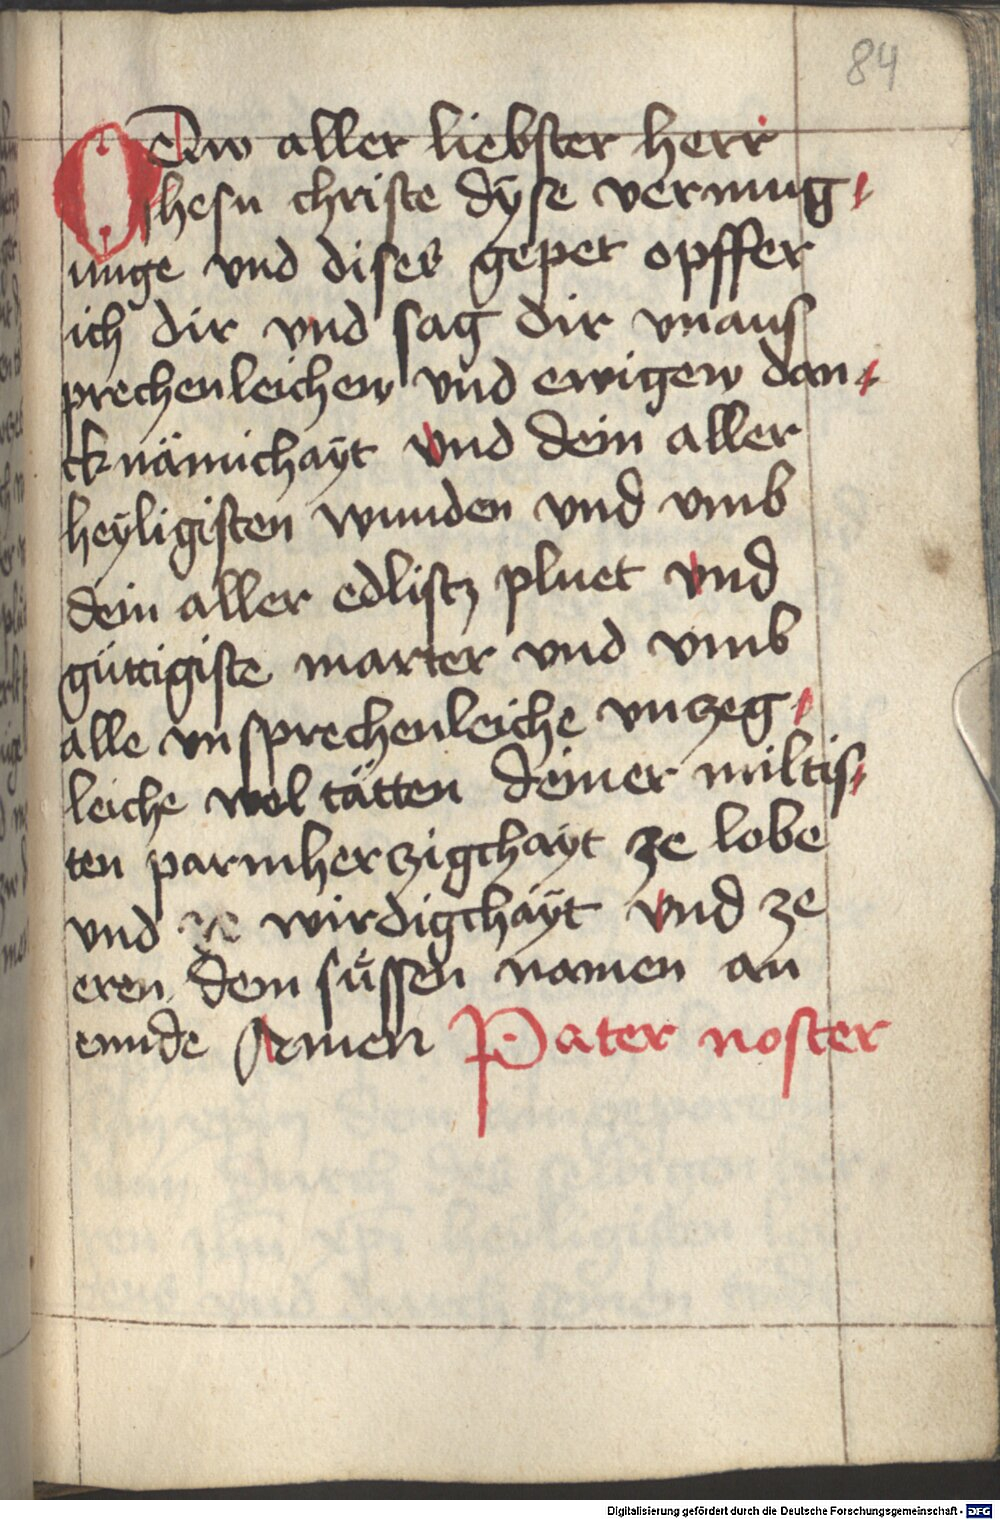 84
O Duw aller liebster herr
Jhesu christe dÿse vermug-
unge vnd dises gepet opffer
ich dir vnd sag dir vnaus
prechenleichen vnd ewigen dan-
cknämichaÿt vnd dein aller
heÿligisten wunden vnd vmb
dein aller edlistz pluet vnd
güttigiste marter vnd vmb
alle vnsprechenleiche vnzeg-
leiche wol tätten deiner miltis-
ten parmherczigchaÿt ze lobe
vnd ze wirdigchaÿt vnd ze
eren dem süssen namen an
ennde Amen Pater noster
Digitalisierung gefördert durch die Deutsche Forschungsgemeinschaft - DFG